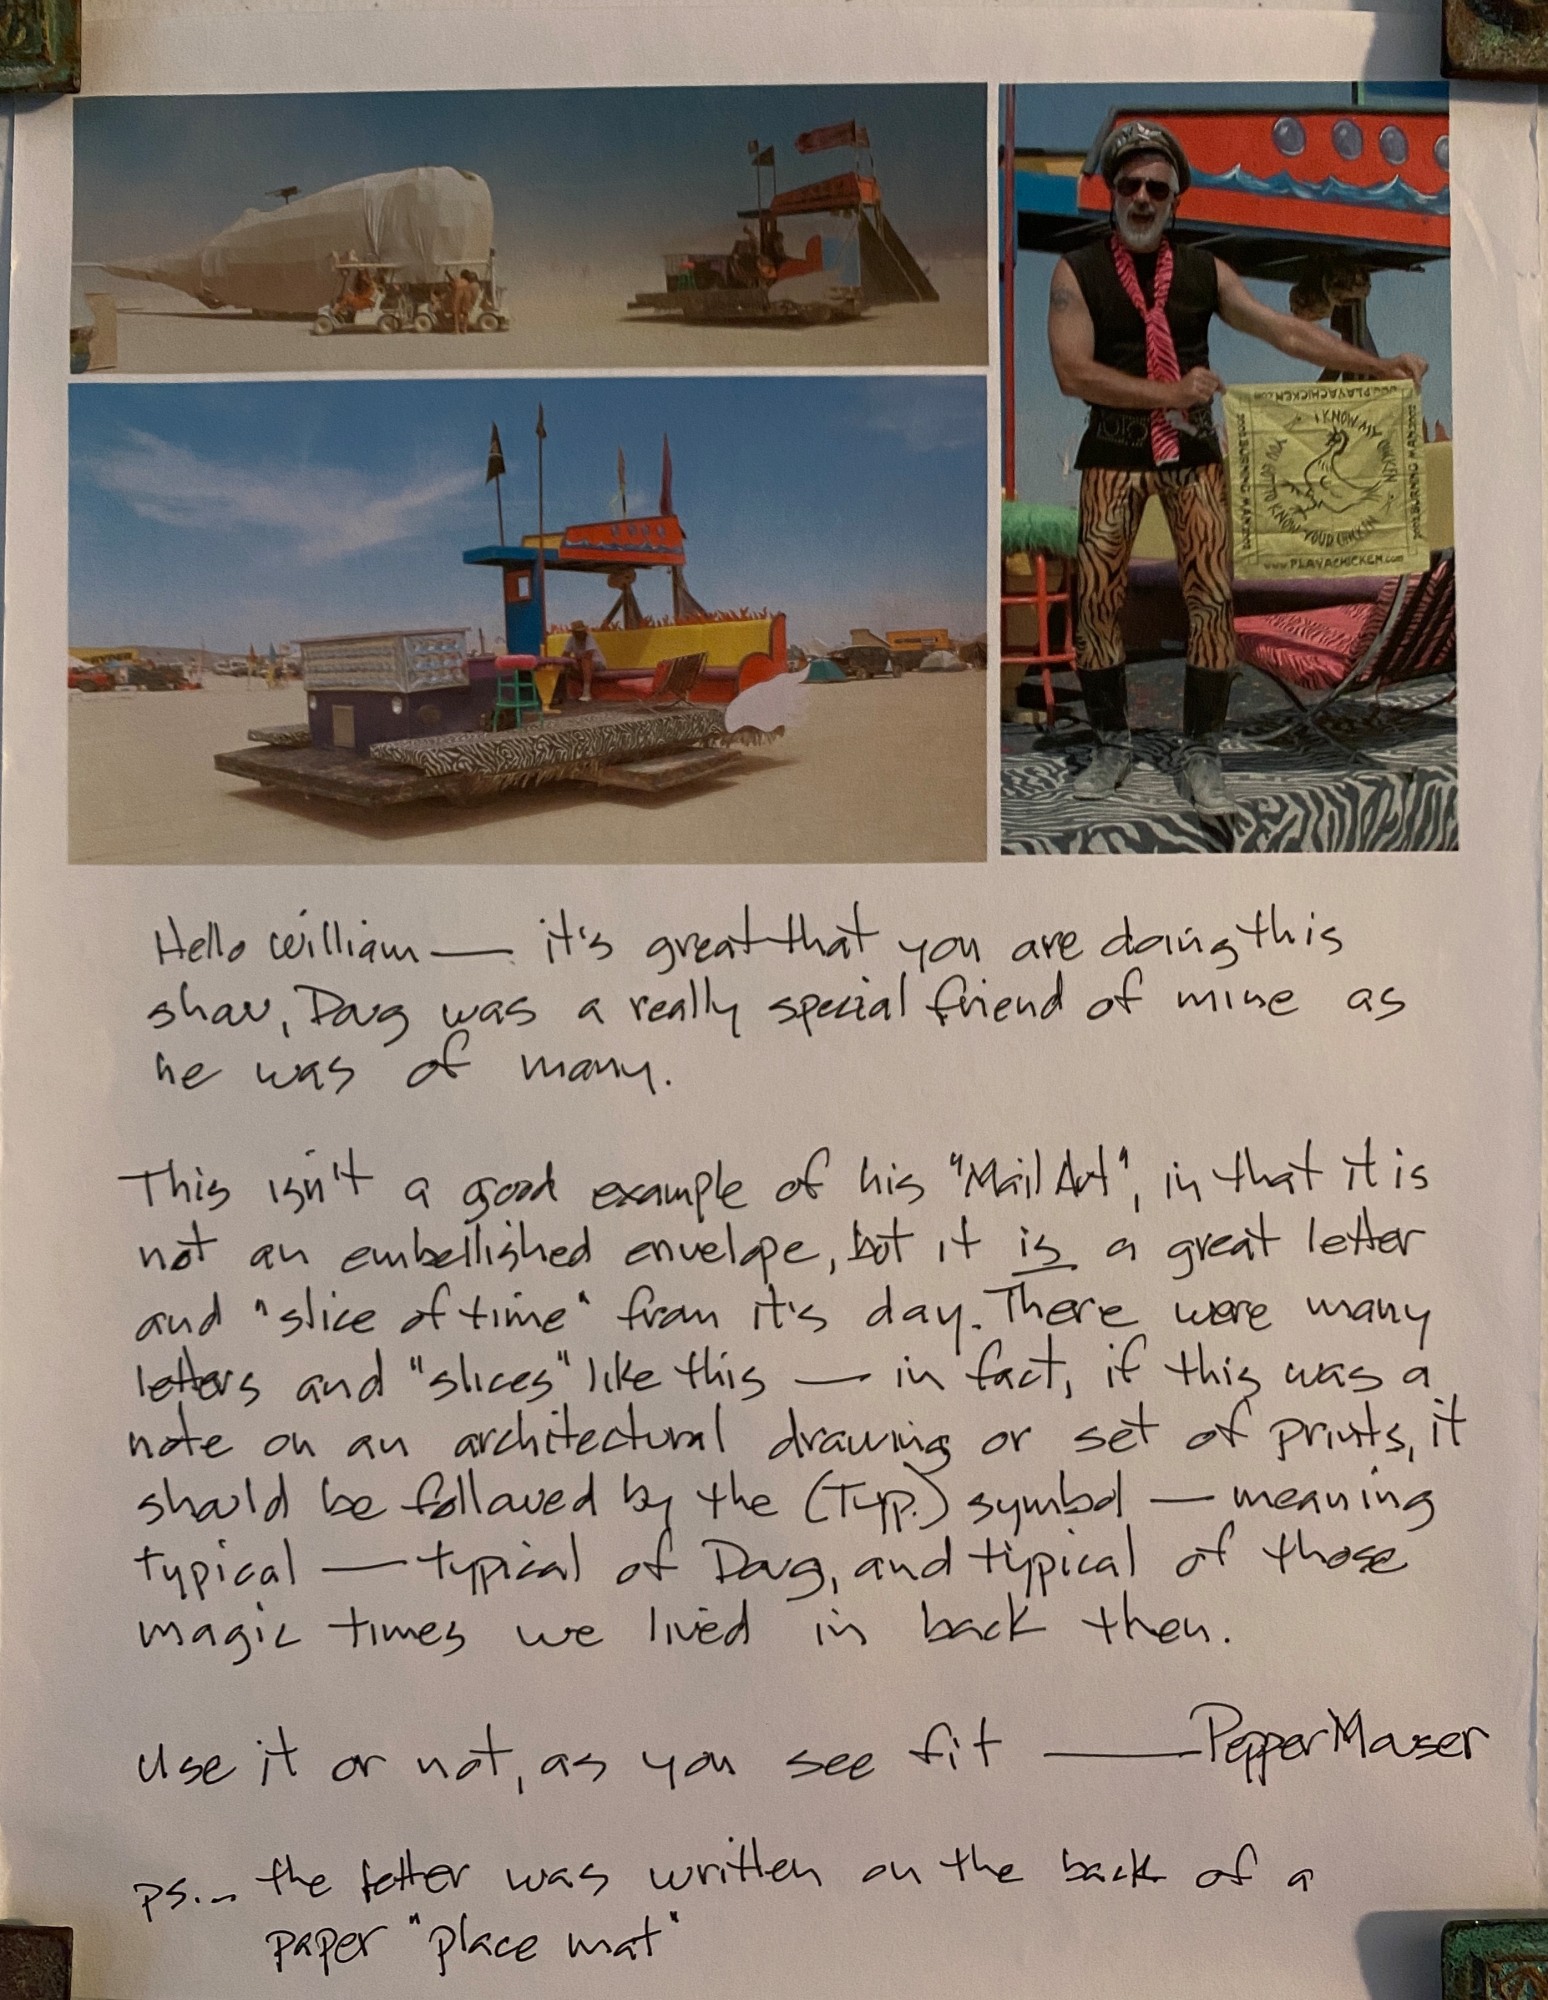 www.PLAYACHICKEN.com
I KNOW MY CHICKEN
YOU GOTTA KNOW YOUR CHICKEN
2002 BURNING MAN 2002
2002 BURNING MAN 2002
www.PLAYACHICKEN.com
Hello William — it's great that you are doing this
show, Doug was a really special friend of mine as
he was of many.
This isn't a good example of his "Mail Art", in that it is
not an embellished envelope, but it is a great letter
and "slice of time" from it's day. There were many
letters and "slices" like this — in fact, if this was a
note on an architectural drawing or set of prints, it
should be followed by the (Typ.) symbol — meaning
typical — typical of Doug, and typical of those
magic times we lived in back then.
Use it or not, as you see fit — Pepper Mouser
ps... the letter was written on the back of a
paper "place mat"